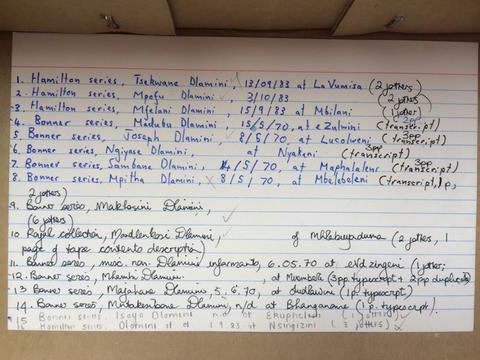 1. Hamilton series, Tsekwane Dlamini, 13/09/83 at LaVumisa (2 jotters)
2. Hamilton series, Mpofu Dlamini, 3/10/83 (2 jotters)
3. Hamilton series, Mfelani Dlamini, 15/9/83 at Mbilani (1 jotter)
4. Bonner series, Madubu Dlamini, 15/5/70, at eZulwini (transcript)
5. Bonner series, Joseph Dlamini, 8/5/70, at Lusolweni (3pp transcript)
6. Bonner series, Ngiyase Dlamini, at Nyakeni (3pp transcript)
7. Bonner series, Sambane Dlamini, 4/5/70, at Maphalaleni (3pp transcript)
8. Bonner series, Mpitha Dlamini, 8/5/70, at Mbelebeleni (transcript, 1p,
2 jotters)
9. Bonner series, Makhosini Dlamini,
(6 jotters)
10. Royal collection, Mndlenkosi Dlamini, of Mahlabayaduma (2 jotters, 1
page of tape contents description)
11. Bonner series, misc. non-Dlamini informants, 6.05.70 at eVdzingeni (1 jotter;
12. Bonner series, Mhambi Dlamini at (3pp typescript + 2pp duplicate)
13. Bonner series, Majahane Dlamini, 5.6.70, at (1p. typescript)
14. Bonner series, Dlamini, n/d at Bhanganane (1p. typescript).
15 Bonner series Isaya Dlamini n.d at Ekupheleni (1 jotter)
16 Hamilton series, Dlamini et al 1 9 83 at Nsingizini (3 jotters)